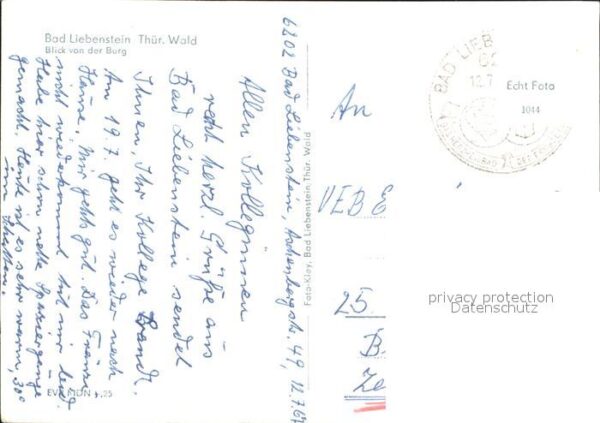 Bad Liebenstein Thür. Wald
Blick von der Burg
6202 Bad Liebenstein, Aschenbergstr. 49, 12.7.67
Allen Kolleginnen
recht herzl. Grüße aus
Bad Liebenstein sendet
Ihnen, Ihr Kollege Brandt.
Am 19.7. geht es wieder nach
Hause, mir gehts gut. Das
nicht wiederkommt tut mir leid.
Habe hier schon nette Spaziergänge
gemacht. Heute ist es sehr warm, 30°
im Schatten.
Foto-Kley, Bad Liebenstein Thür. Wald
BAD LIEB
12.7
Echt Foto
1044
An
VEB E
25
B.
privacy protection
Datenschutz